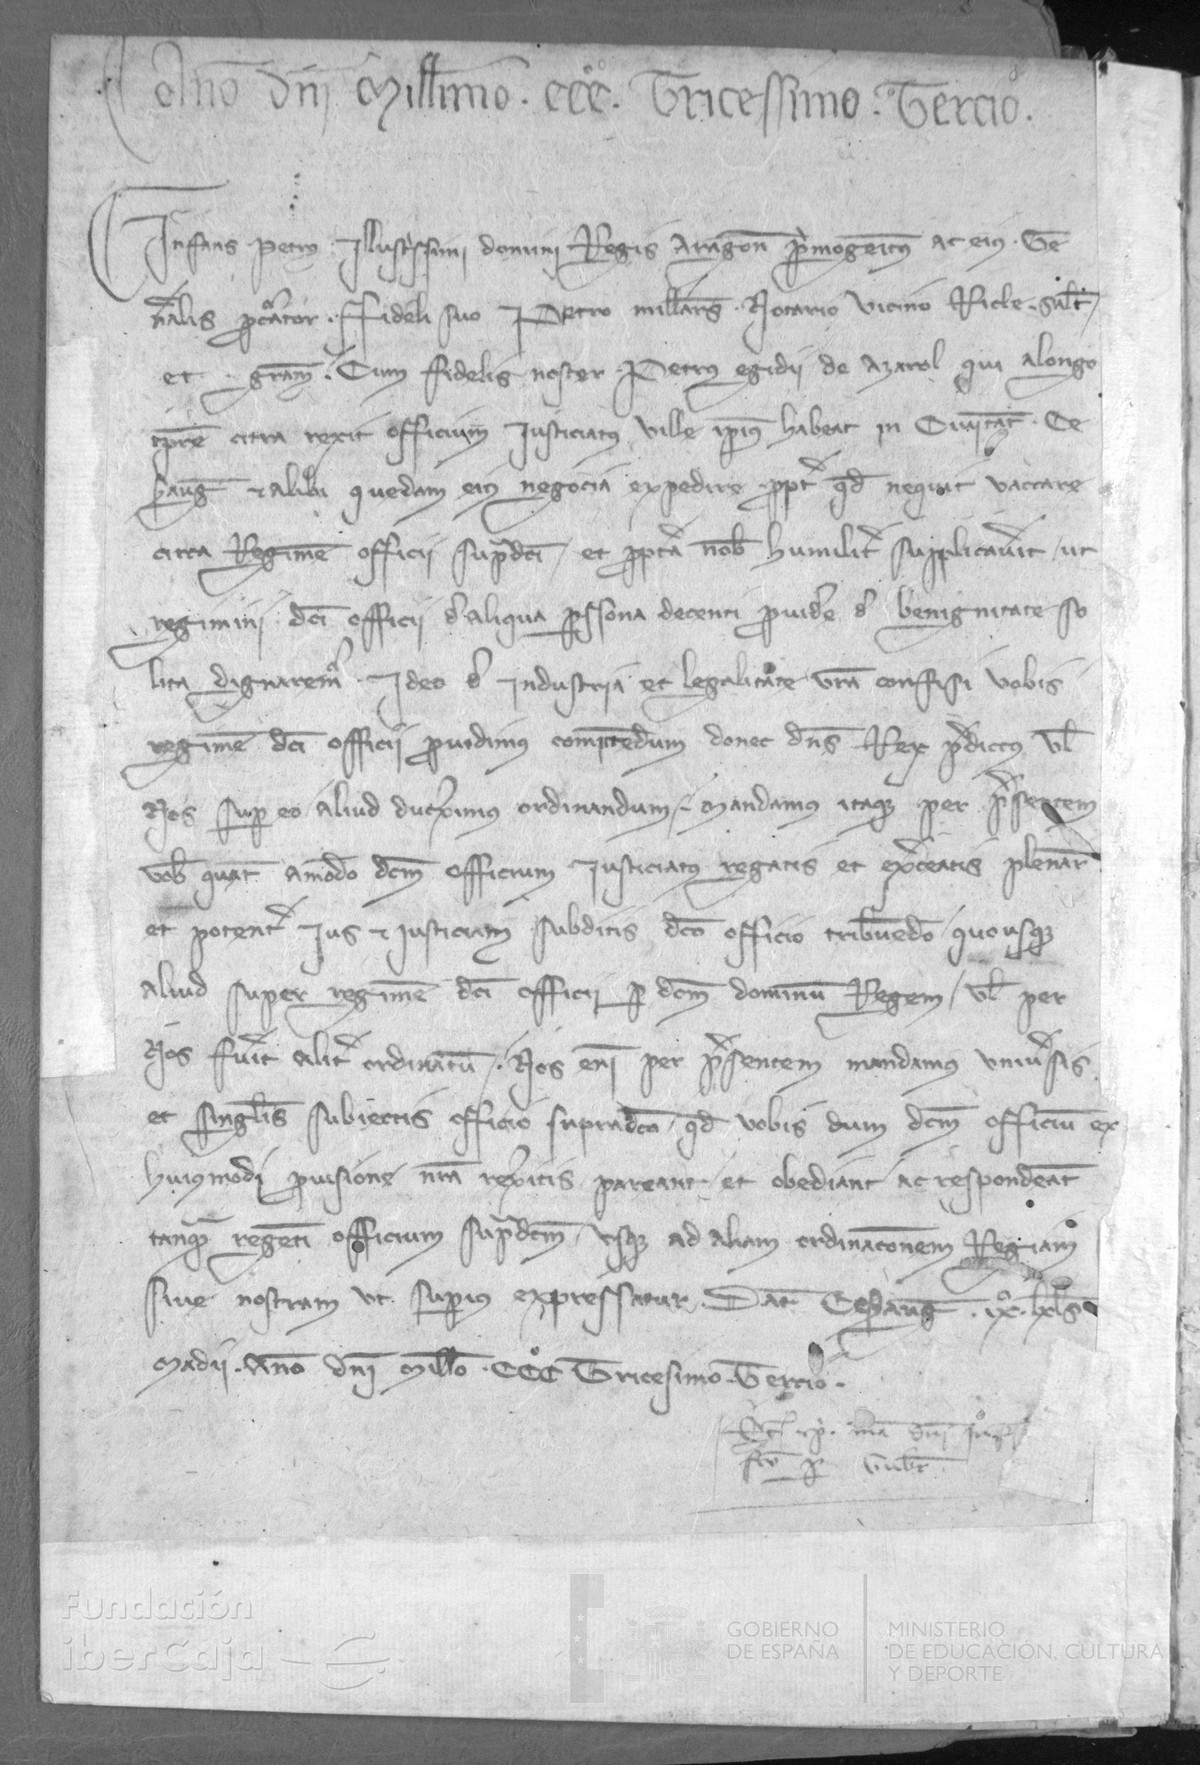 Anno dni Millimo. ccc. Tricessimo. Tercio.
Infans Petrus Illustrissimi domini Regis Aragon primogenitus ac eius Ge
nalis procurator. Fideli suo Petro millars. Notario vicino Ricle. salt
et gram. Cum fidelis noster Petrus egidii de azarol qui alongo
tpre citra rexit officium Justiciatus ville ipius habeat in Civitat Ce
saraug & alibi quedam eius negocia expedire. ppt qd nequit vaccare
circa Regimen officii supradci, et ppta nob humilit supplicavit, ut
regimini dci officii d aliqua psona decenti provide d benignitate so
lita dignaremr. Ideo d Industria et legalitate vra confisi vobis
regime dci officii providimus comittedum donec dns Rex pdictus vl
Nos sup eo aliud duxerimus ordinandum, mandamus itaq per psentem
vob quat amodo dcm officium Justiciatus regatis et exerceatis plenar
et potent Jus & justiciam subditis dco officio tribuendo, quousq
aliud super regimine dci officii p dcm dominum Regem, vl per
Nos fuit alit ordinatu,. Nos eni per psentem mandamus universis
et singulis subiectis officio supradco, qd vobis dum dcm officiu ex
huiusmodi provisione nra rexitis pareant et obediant ac respondeat
tanq regeti officium supdcm, usq ad aliam ordinaconem Regiam
sive nostram ut supius expressatur. Dat Cesaraug. ix. kls
Madii. Anno dni millo. CCC Tricesimo. Tercio.
Fundación
iberCaja
GOBIERNO
DE ESPAÑA
MINISTERIO
DE EDUCACIÓN, CULTURA
Y DEPORTE